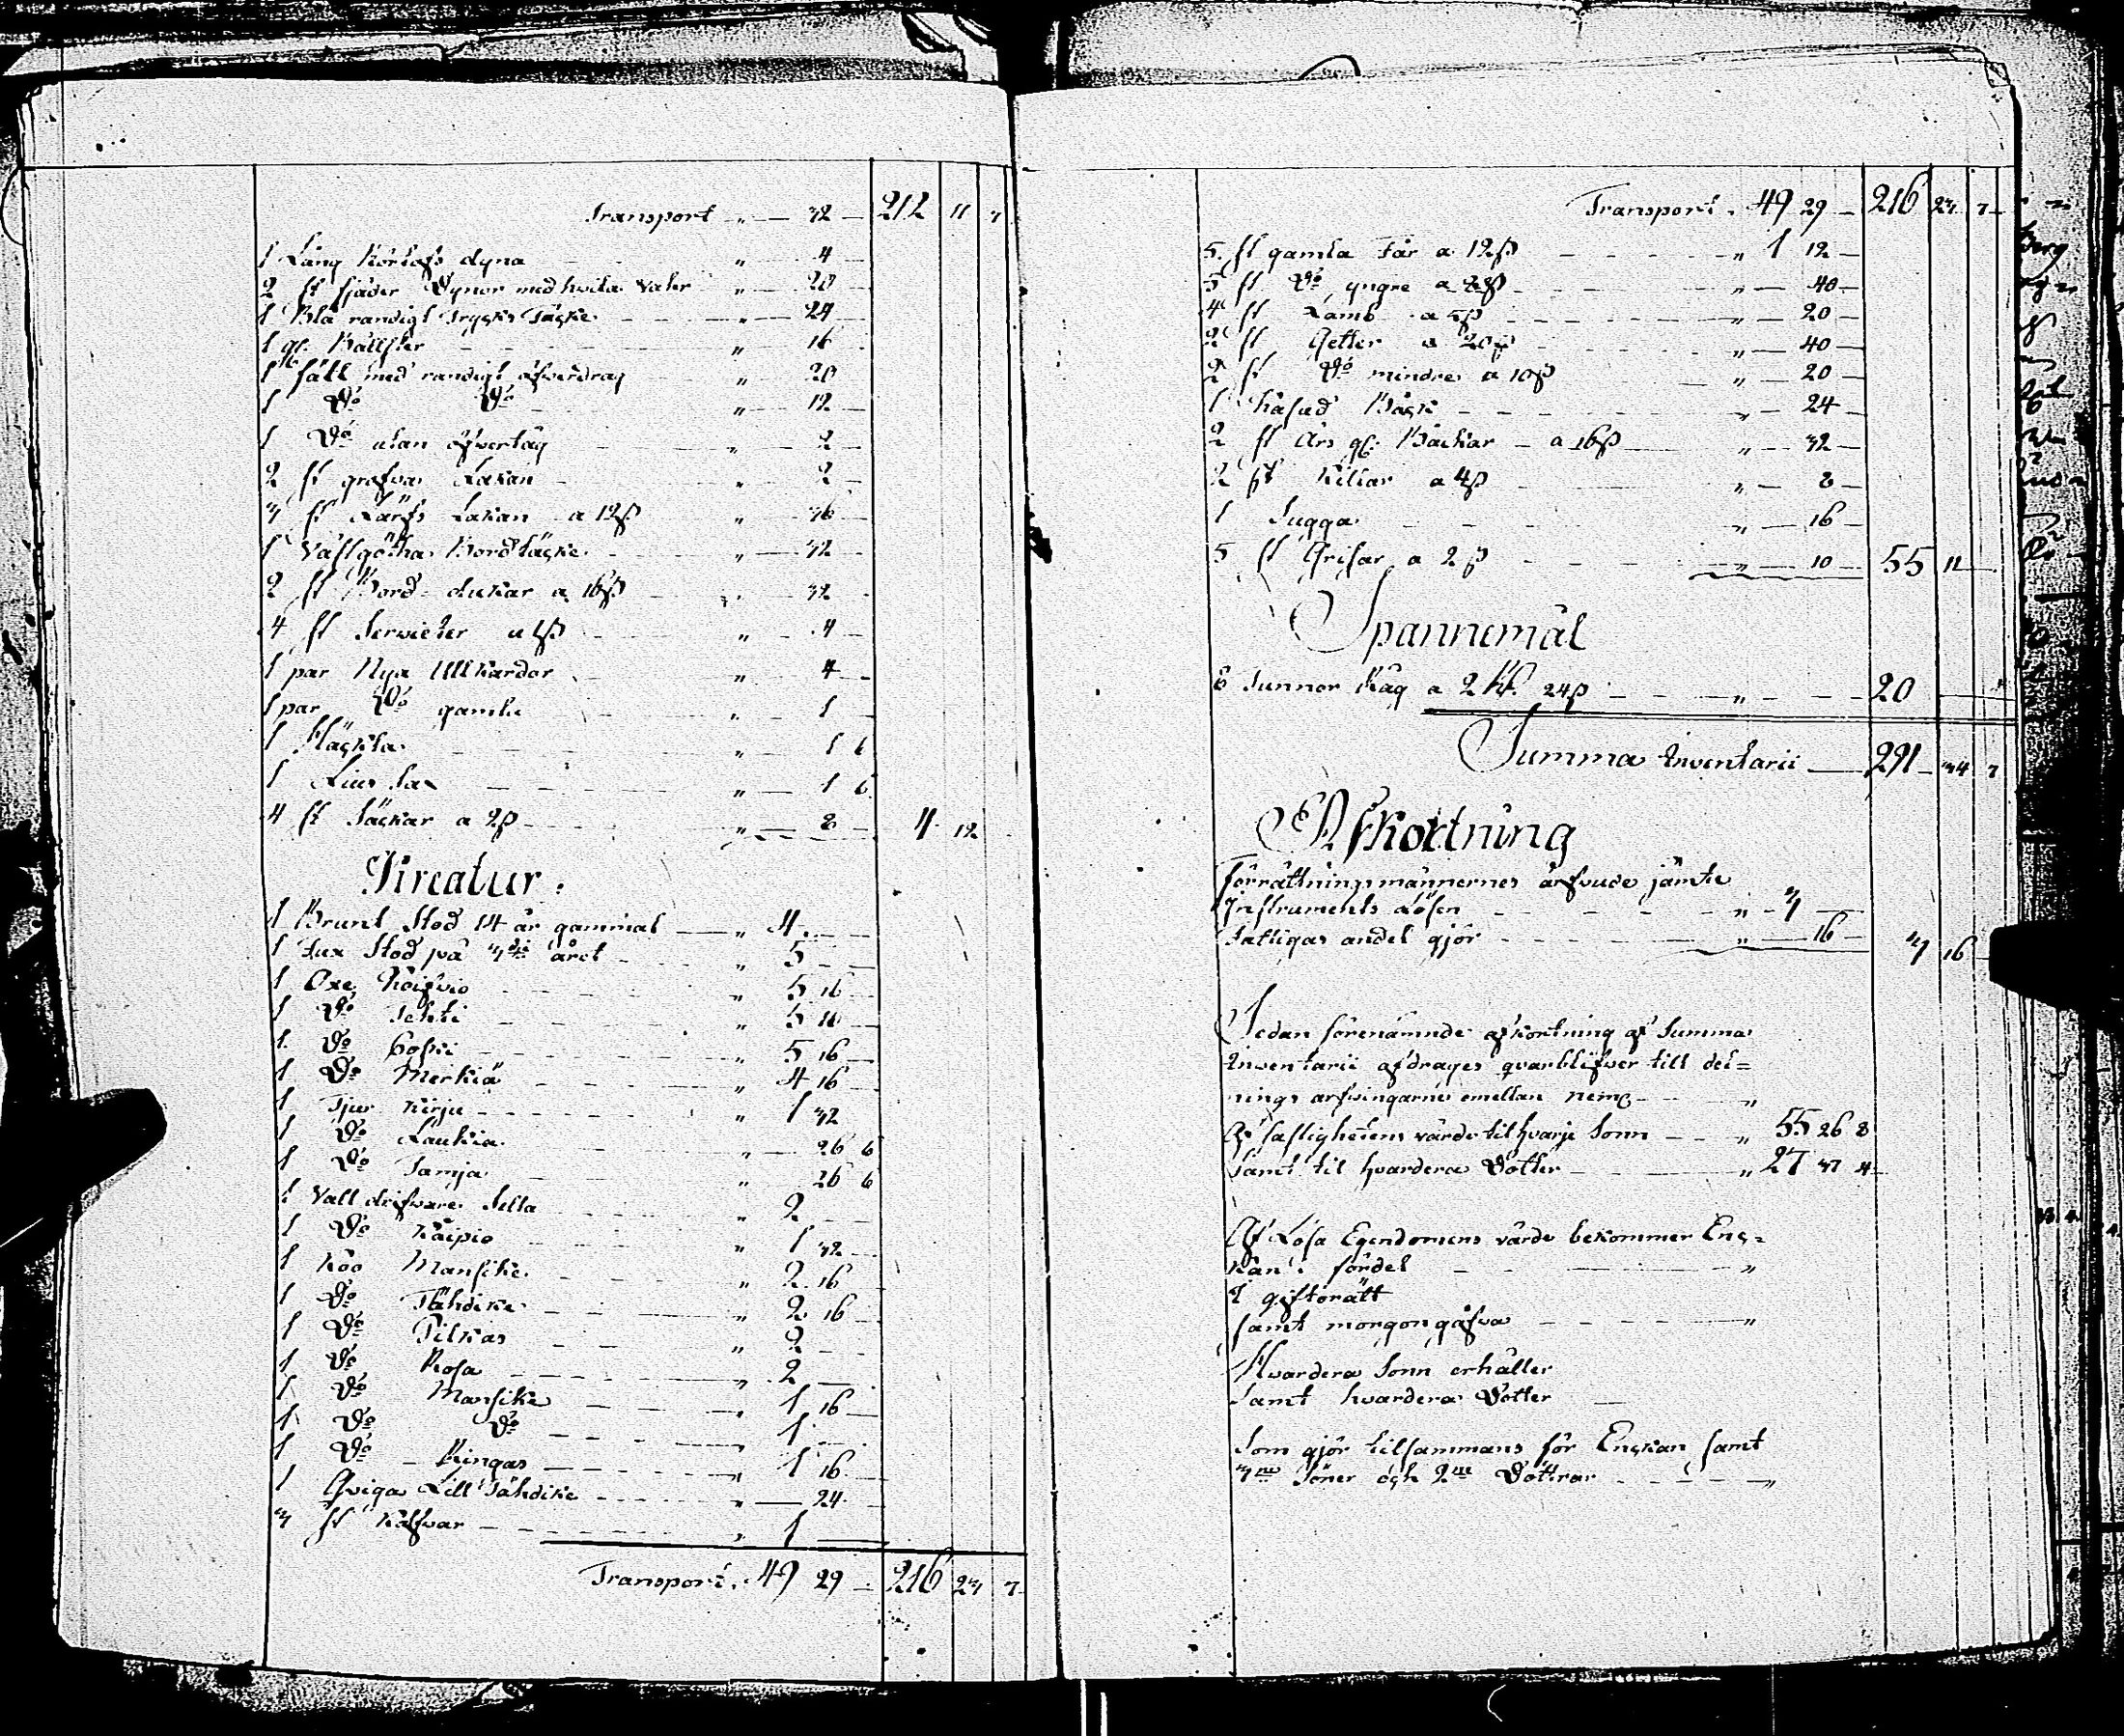 Transport „ — 32 — 212 11 7
1 Lång Körhafs dyna „ 4
2 st fjäder Dynor med hvita Vahr „ 20
1 Blå randigt Trycks Täcke „ 24
1 gl: Bällster „ 16
1 fäll med randigt öfverdrag „ 20
1 Do Do „ 12
1 Do utan öfvertåg „ 2
2 st grofva Lakan „ 2
3 st Lärfts Lakan a 12ß „ 36
1 Västgötha Bordtäcke „ 32
2 st Bord dukar a 16ß „ 32
4 st Servieter a 1ß „ 4
1 par Nya Ullkardor „ 4
1 par Do gamla „ 1
1 Häckla „ 1 6
1 Lius Sax „ 1 6
4 st Säckar a 2ß „ 8 — 4 12
Kreatur.
1 Brunt Stod 14 år gammal „ 4
1 Fux Stod på 3die året „ 5
1 Oxe „ 5 16
1 Do Tehti „ 5 16
1 Do „ 5 16
1 Do Merkiä „ 4 16
1 Tjur Kirju „ 1 32
1 Do Laukia „ 26 6
1 Do Tamja „ 26 6
1 Vall drifvare Sella „ 2
1 Do Kaipio „ 1 32
1 Koo Mansike „ 2 16
1 Do Tähdike „ 2 16
1 Do Pilkas „ 2
1 Do Rosa „ 2
1 Do Mansike „ 1 16
1 Do Do „ 1
1 Do Ringas „ 1 16
1 Qviga Lill Tähdike „ 24
3 st Kalfvar „ 1
Transport. 49 29 — 216 23 7
Transport. 49 29 — 216 23 7
5 st gamla Får a 12ß „ 1 12
5 st Do yngre a 8ß „ 40
4 st Lamb a 5ß „ 20
2 st Getter a 20ß „ 40
2 st Do mindre a 10ß „ 20
1 Bäck „ 24
2 st Års gl: Bäckar a 16ß „ 32
2 st Killiar a 4ß „ 8
1 Sugga „ 16
5 st Grisar a 2ß „ 10 — 55 11
Spannemål
8 Tunnor Råg a 2 Rd. 24ß „ 20
Summa Inventarii 291 34 7
Afkortning
Förrättningsmännernes arfvode jämte
Instruments Lösen „ 3
Fattigas andel gjör „ 16 — 3 16
Sedan förenämnde afkortning af Summa
Inventarii afdrages qvarblifver till del=
nings arfvingarne emellan neml „
Af fastighetens värde til hvarje Sonn „ 55 26 8
Samt til hvardera Dotter „ 27 37 4
Af Lösa Egendomens värde bekommer Enc=
kan: fördel „
I giftorätt
samt morgongåfva „
Hvardera Sonn erhåller
Samt hvardera Dotter
Som gjör tilsammans för Enckan samt
3ne Söner och 2ne Döttrar „